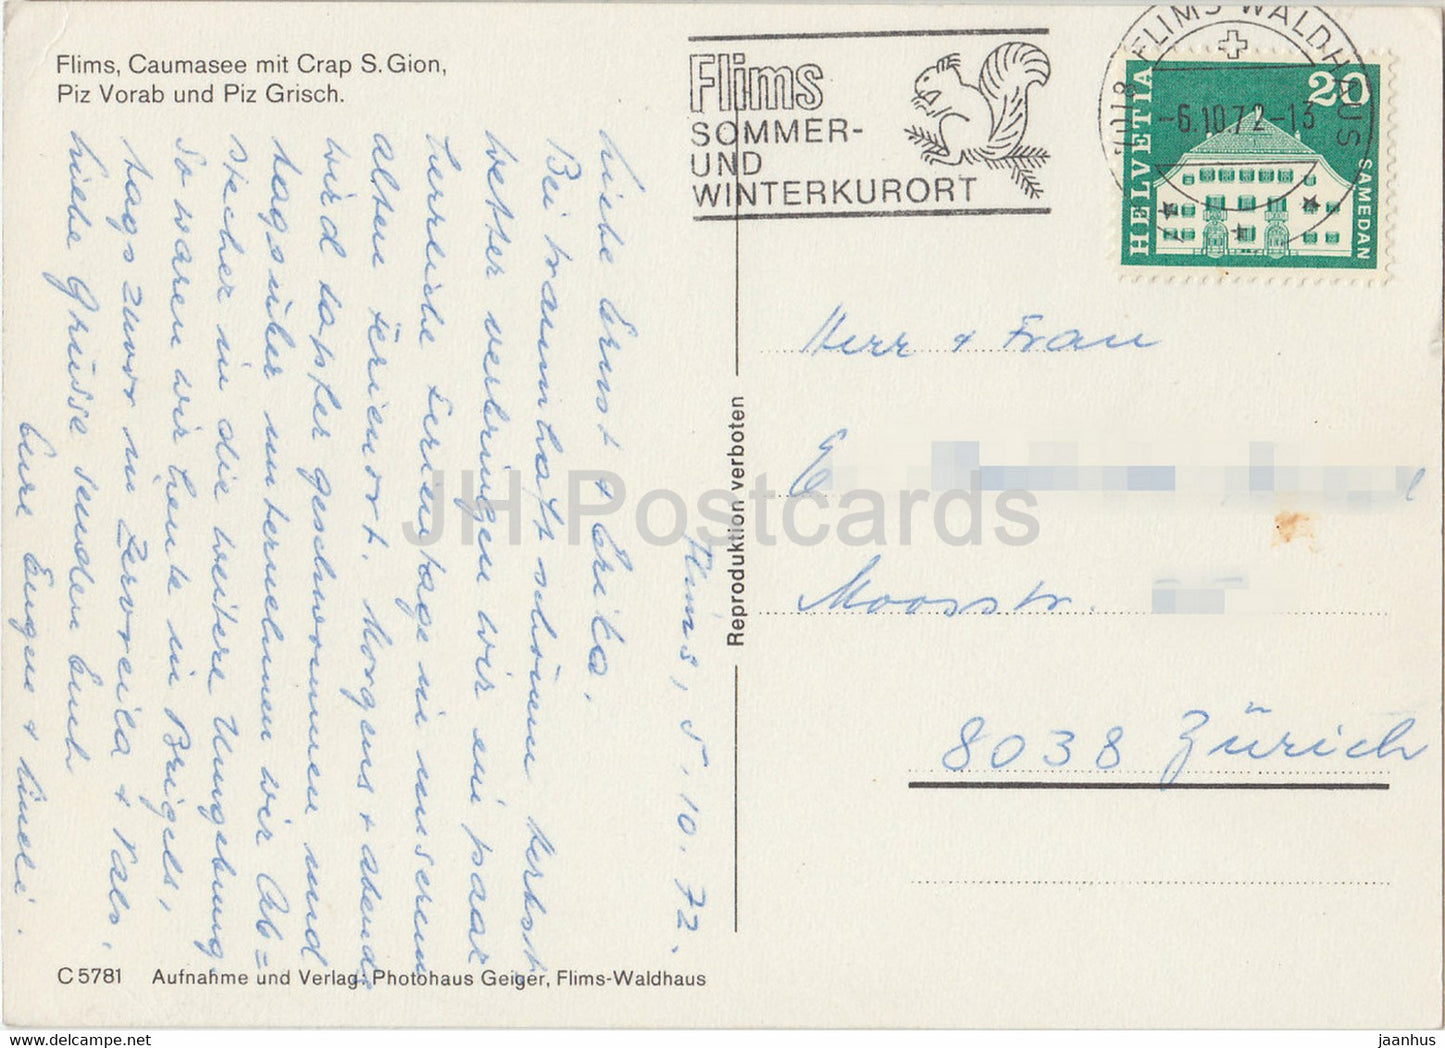 Flims, Caumasee mit Crap S. Gion,
Piz Vorab und Piz Grisch.
Flims
SOMMER-
UND
WINTERKURORT
FLIMS WALDHAUS
-6.10.72-13
HELVETIA
20
SAMEDAN
Flims, 5.10.72.
Liebe Ernst + Erika,
Bei traumhaft schönem Herbst-
wetter verbringen wir ein paar
herrliche Ferientage in unserem
alten Ferienort. Morgens + abends
wird tapfer geschwommen und
tagsüber unternehmen wir Ab=
stecher in die weitere Umgebung.
So waren wir heute in Brigels,
tags zuvor in Zervreila + Vals.
Liebe Grüsse senden Euch
Eure Eugen +
Herr + Frau
E
Moosstr.
8038 Zürich
Reproduktion verboten
C 5781 Aufnahme und Verlag: Photohaus Geiger, Flims-Waldhaus
JH Postcards
www.delcampe.net
jaanhus